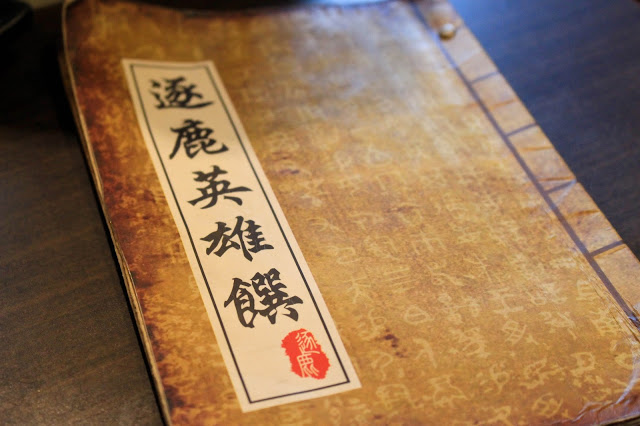 逐鹿英雄饌
逐鹿